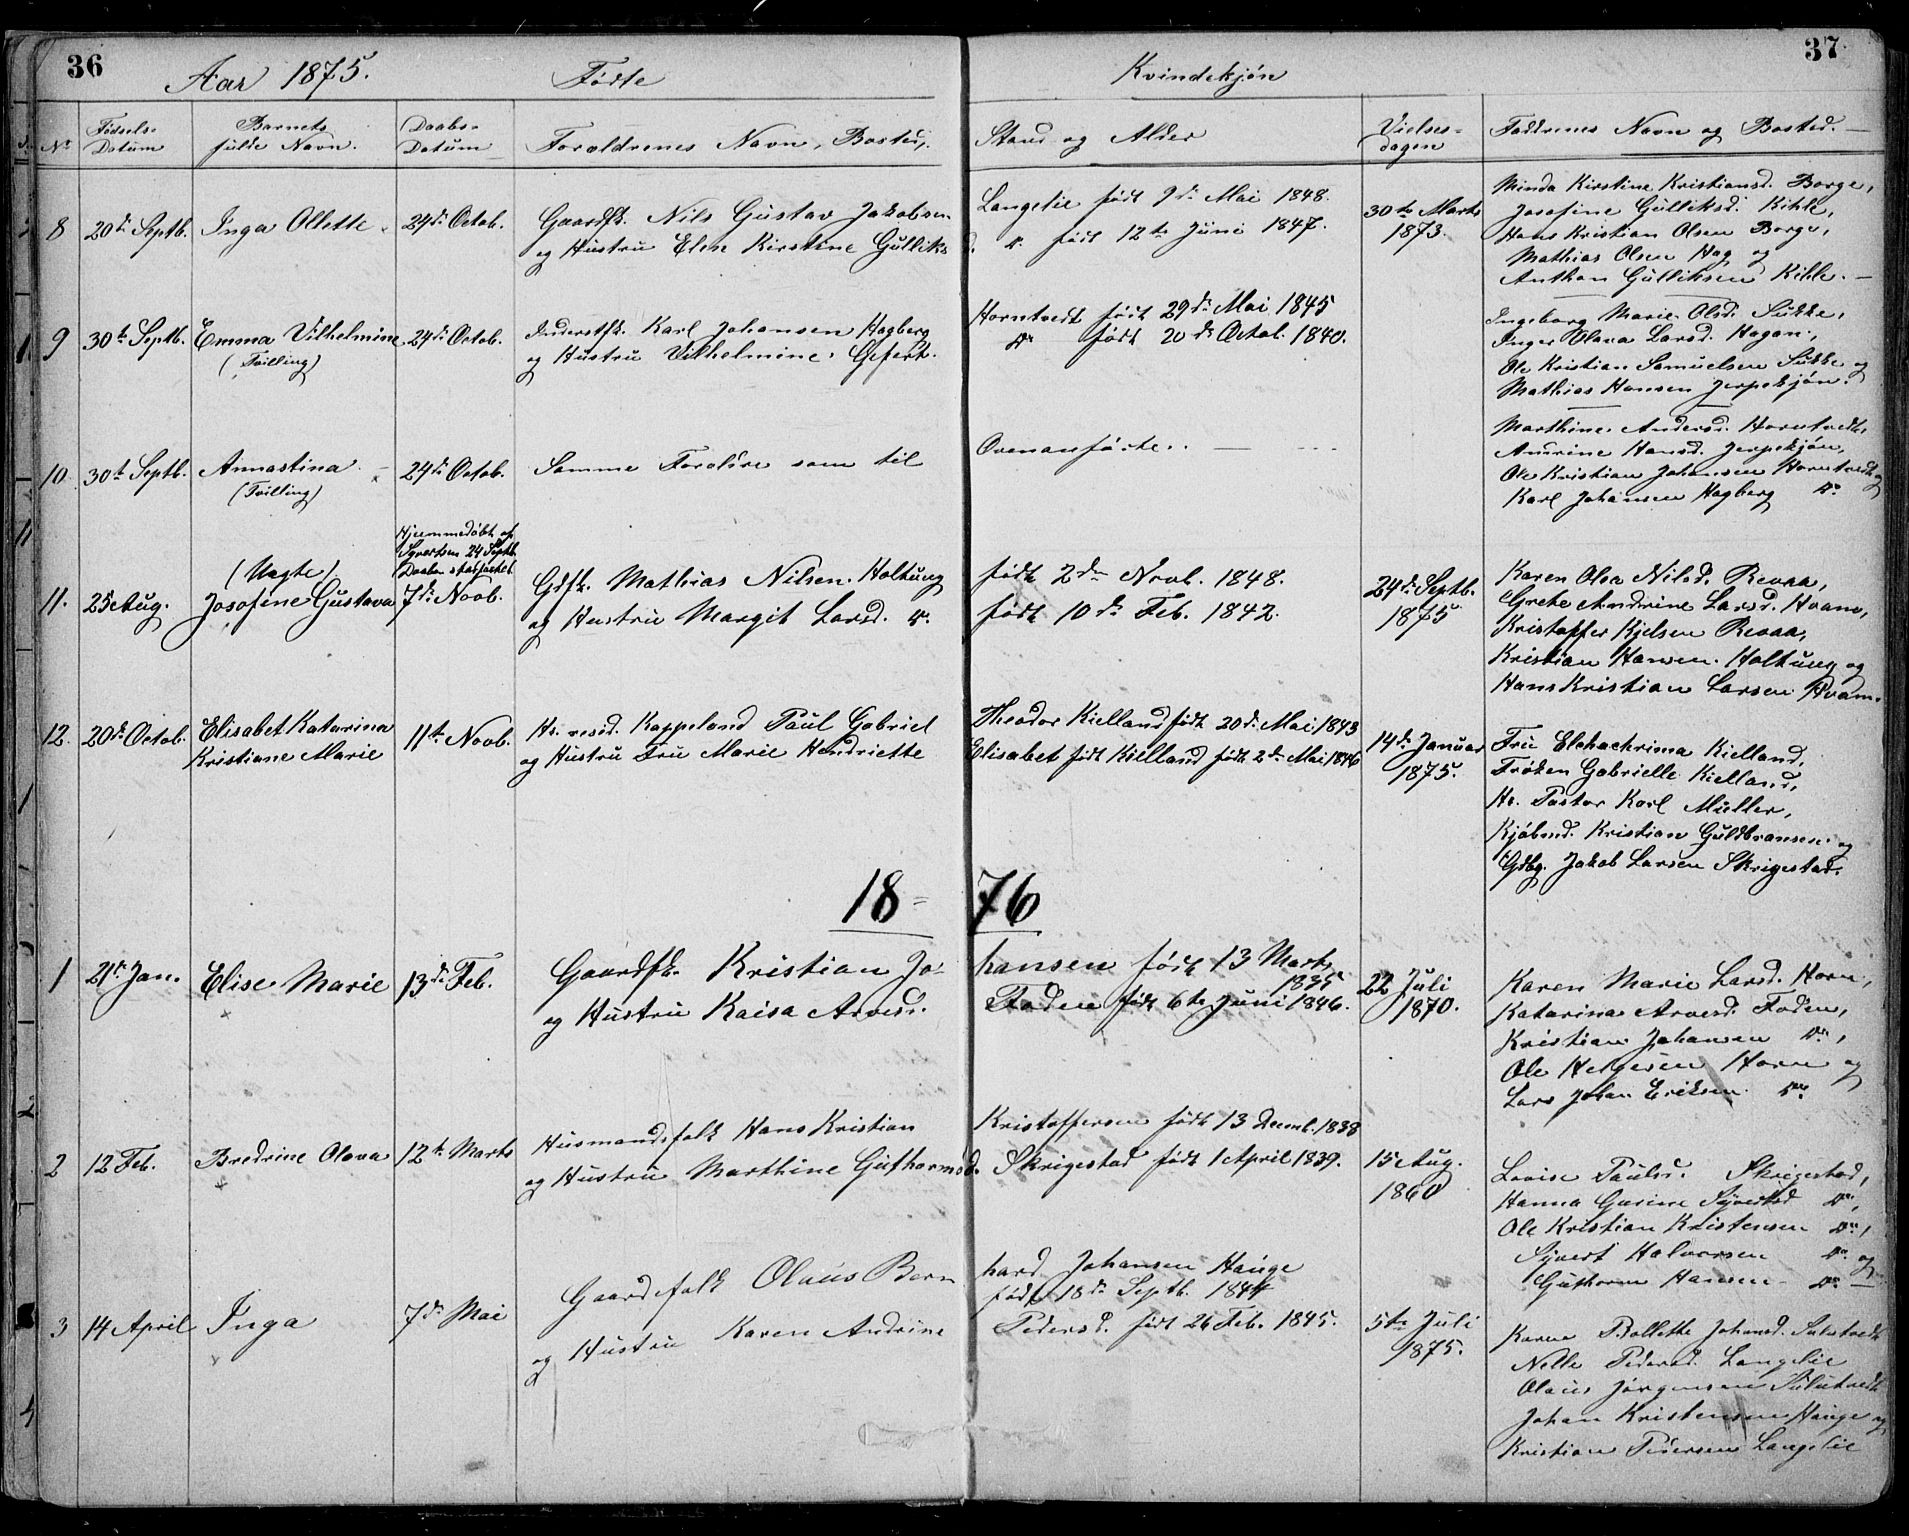 36
Aar 1875. Fødte
Kvindekjøn
37
No
Fødsels-
Datum
Barnets
fulde Navn.
Daabs-
Datum
Forældrenes Navn, Bosted,
Stand og Alder
Vielses-
dagen
Faddrenes Navn og Bosted.
8 20de Septb. Inga Ollette 24de Octob.
Gaardfk. Nils Gustav Jakobsen
og Hustru Elen Kirstine Gulliksd.
Langelie født 9de Mai 1848.
do født 12te Juni 1847.
30te Marts
1873.
Minda Kirstine Kristiansd. Borge,
Josefine Gulliksd. Kihle,
Hans Kristian Olsen Borge,
Mathias Olsen Hag og
Anthon Gulliksen Kihle.
9 30te Septb. Emma Vilhelmine 24de Octob.
(Tvilling)
Inderstfk. Karl Johansen Hagberg
og Hustru Vilhelmine Gefert.
Horntvedt født 29de Mai 1845
do født 20de Octob. 1840.
Ingeborg Marie Olsd. Sukke,
Inger Olava Larsd. Hagan,
Ole Kristian Samuelsen Sukke og
Mathias Hansen Jerpekjøn.
10 30te Septb. Annastina 24de Octob.
(Tvilling)
Samme Forældre som til
Ovenanførte.
Marthine Andersd. Horntvedt,
Anurine Hansd. Jerpekjøn,
Ole Kristian Johansen Horntvedt og
Karl Johansen Hagberg do
Hjemmedøbt af
Syvertsen 24 Septb.
Daaben stadfæstet
11. 25 Aug. (Uægte)
Josefine Gustava 7de Novb.
Gdfk. Mathias Nilsen Holtung
og Hustru Margit Larsd. do
født 2den Novb. 1848.
født 10de Feb. 1842.
24de Septb.
1875
Karen Olea Nilsd. Revaa,
Grete Andrine Larsd. Hvam,
Kristoffer Kjelsen Revaa,
Kristian Hansen Holtung og
Hans Kristian Larsen Hvam.
12. 20de Octob. Elisabet Katarina
Kristiane Marie
11te Novb.
Hr. resid. Kappeland Paul Gabriel
og Hustru Fru Marie Hendriette
Theodor Kielland født 20de Mai 1843
Elisabet født Kielland født 2den Mai 1846
14de Januar
1875.
Fru Kielland,
Frøken Gabrielle Kielland,
Hr. Pastor Karl Müller,
Kjøbmd. Kristian Guldbransen og
Gdbg. Jakob Larsen Skrigestad.
18 = 76
1 21de Jan. Elise Marie 13de Feb.
Gaardfk. Kristian Jo-
og Hustru Kaisa Arvesd.
hansen født 13 Marts
1835
Foden født 6te Juni 1846.
22 Juli
1870.
Karen Marie Larsd. Horn,
Katarina Arvesd. Foden,
Kristian Johansen do,
Ole Helgesen Horn og
Lars Johan Eriksen do
2 12 Feb. Bredrine Olava 12te Marts
Husmandsfolk Hans Kristian
og Hustru Marthine Guthormsd.
Kristoffersen født 13 Decemb. 1838
Skrigestad født 1 April 1839.
15 Aug.
1860
Lovise Paulsd. Skrigestad,
Hanna Gurine Syvertsd do,
Ole Kristian Kristensen do,
Syvert Halvorsen do og
Guthorm Hansen do
3 14 April Inga 7de Mai
Gaardsfolk Olaus Bern
og Hustru Karen Andrine
hard Johansen Hauge
født 18de Septb. 1844
Pedersd. født 26 Feb. 1845.
5te Juli
1875.
Karen Bollette Johansd.
Nelle Pedersd. Langelie
Olaus Jørgensen
Johan Kristensen Hauge og
Kristian Pedersen Langelie